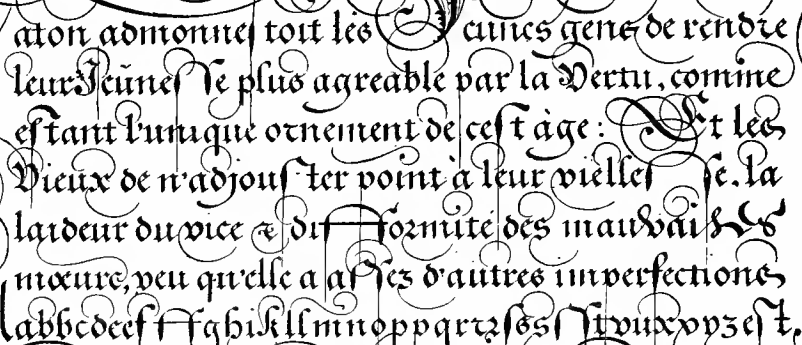 aton admonnestoit les Jeunes gens de rendre
leur Jeūnesse plus agreable par la Vertu, comme
estant l'unique ornement de cest àge: Et les
Vieux de n'adjouster point à leur vielless se. la
laideur du vice & difformité des mauvaises
mœurs, veu qu'elle a assez d'autres imperfections
abbcdeefffghikllmnoppqrrzsssſſstvuxxyyzest.